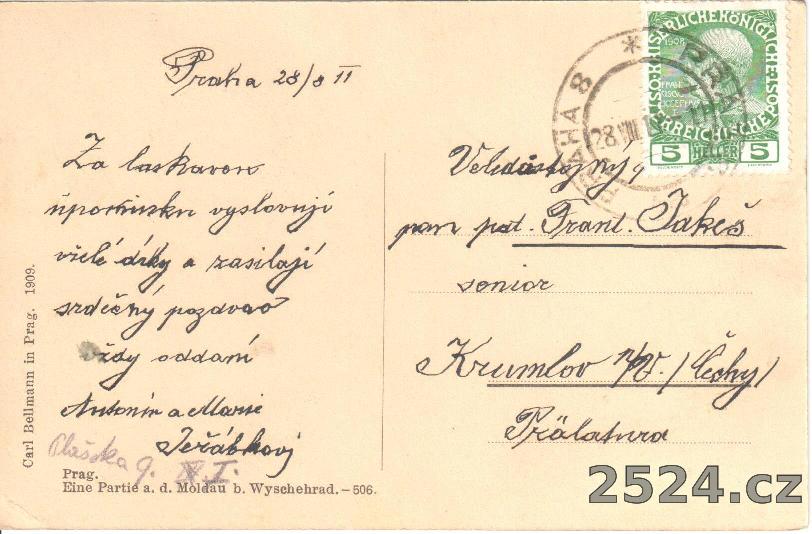 Praha 28/8 11
Za laskavou
upomínku vyslovují
vřelé díky a zasílají
srdečný pozdrav
vždy oddaní
Antonín a Marie
Jeřábkovi
IX I.
Prag.
Eine Partie a. d. Moldau b. Wyschehrad.–506.
Carl Bellmann in Prag. 1909.
Veledůstojný
pan pat. Frant. Jakeš
senior
Krumlov n/V. (Čechy)
Prälatura
KAISERLICHE KÖNIGLICHE
ÖSTERREICHISCHE
1908
5 HELLER 5
PRAHA 8
28.VIII.11
2524.cz